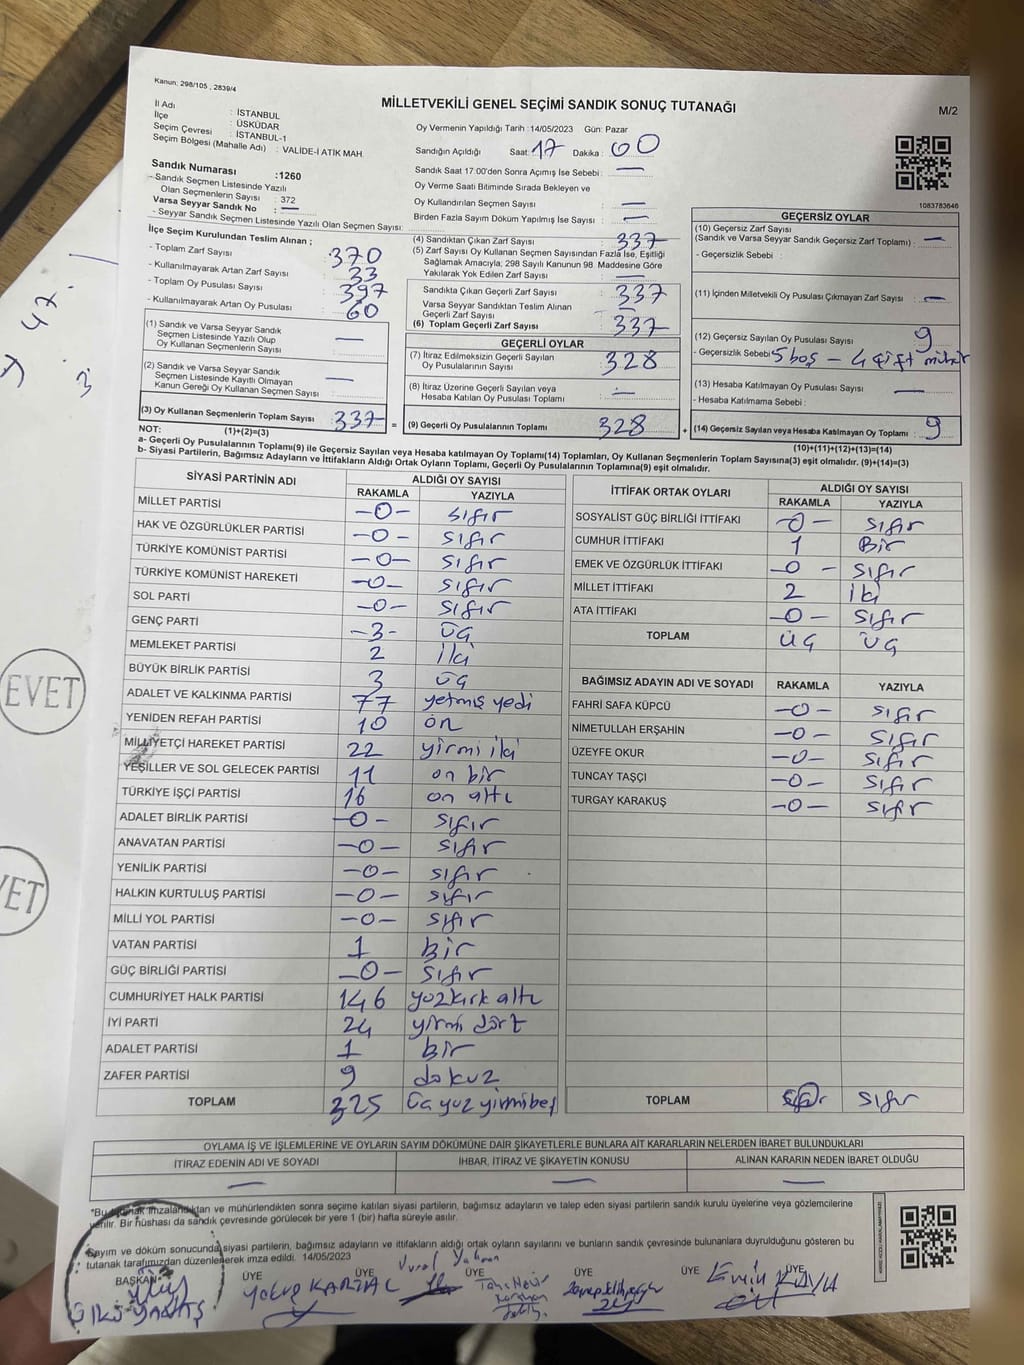 Kanun; 298/105 , 2839/4
MİLLETVEKİLİ GENEL SEÇİMİ SANDIK SONUÇ TUTANAĞI
M/2
İl Adı : İSTANBUL
İlçe : ÜSKÜDAR
Seçim Çevresi : İSTANBUL-1
Seçim Bölgesi (Mahalle Adı) : VALİDE-İ ATİK MAH.
Sandık Numarası :1260
- Sandık Seçmen Listesinde Yazılı
Olan Seçmenlerin Sayısı : 372
Varsa Seyyar Sandık No : —
- Seyyar Sandık Seçmen Listesinde Yazılı Olan Seçmen Sayısı:
Oy Vermenin Yapıldığı Tarih : 14/05/2023 Gün: Pazar
Sandığın Açıldığı Saat: 17 Dakika : 00
Sandık Saat 17.00'den Sonra Açımış İse Sebebi : —
Oy Verme Saati Bitiminde Sırada Bekleyen ve
Oy Kullandırılan Seçmen Sayısı : —
Birden Fazla Sayım Döküm Yapılmış İse Sayısı : —
1083783646
İlçe Seçim Kurulundan Teslim Alınan ;
- Toplam Zarf Sayısı : 370
- Kullanılmayarak Artan Zarf Sayısı : 33
- Toplam Oy Pusulası Sayısı : 397
- Kullanılmayarak Artan Oy Pusulası : 60
(1) Sandık ve Varsa Seyyar Sandık
Seçmen Listesinde Yazılı Olup
Oy Kullanan Seçmenlerin Sayısı : —
(2) Sandık ve Varsa Seyyar Sandık
Seçmen Listesinde Kayıtlı Olmayan
Kanun Gereği Oy Kullanan Seçmen Sayısı : —
(3) Oy Kullanan Seçmenlerin Toplam Sayısı : 337
(4) Sandıktan Çıkan Zarf Sayısı : 337
(5) Zarf Sayısı Oy Kullanan Seçmen Sayısından Fazla İse, Eşitliği
Sağlamak Amacıyla; 298 Sayılı Kanunun 98. Maddesine Göre
Yakılarak Yok Edilen Zarf Sayısı : —
Sandıkta Çıkan Geçerli Zarf Sayısı : 337
Varsa Seyyar Sandıktan Teslim Alınan
Geçerli Zarf Sayısı : —
(6) Toplam Geçerli Zarf Sayısı : 337
GEÇERLİ OYLAR
(7) İtiraz Edilmeksizin Geçerli Sayılan
Oy Pusulalarının Sayısı : 328
(8) İtiraz Üzerine Geçerli Sayılan veya
Hesaba Katılan Oy Pusulası Toplamı : —
= (9) Geçerli Oy Pusulalarının Toplamı : 328
GEÇERSİZ OYLAR
(10) Geçersiz Zarf Sayısı
(Sandık ve Varsa Seyyar Sandık Geçersiz Zarf Toplamı) : —
- Geçersizlik Sebebi :
(11) İçinden Milletvekili Oy Pusulası Çıkmayan Zarf Sayısı : —
(12) Geçersiz Sayılan Oy Pusulası Sayısı : 9
- Geçersizlik Sebebi : 5 boş – 4 çift mühür
(13) Hesaba Katılmayan Oy Pusulası Sayısı : —
- Hesaba Katılmama Sebebi :
+ (14) Geçersiz Sayılan veya Hesaba Katılmayan Oy Toplamı : 9
NOT: (1)+(2)=(3)
(10)+(11)+(12)+(13)=(14)
a- Geçerli Oy Pusulalarının Toplamı(9) ile Geçersiz Sayılan veya Hesaba Katılmayan Oy Toplamı(14) Toplamları, Oy Kullanan Seçmenlerin Toplam Sayısına(3) eşit olmalıdır. (9)+(14)=(3)
b- Siyasi Partilerin, Bağımsız Adayların ve İttifakların Aldığı Ortak Oyların Toplamı, Geçerli Oy Pusulalarının Toplamına(9) eşit olmalıdır.
SİYASİ PARTİNİN ADI ALDIĞI OY SAYISI
RAKAMLA YAZIYLA
MİLLET PARTİSİ —0— sıfır
HAK VE ÖZGÜRLÜKLER PARTİSİ —0— sıfır
TÜRKİYE KOMÜNİST PARTİSİ —0— sıfır
TÜRKİYE KOMÜNİST HAREKETİ —0— sıfır
SOL PARTİ —0— sıfır
GENÇ PARTİ -3- üç
MEMLEKET PARTİSİ 2 iki
BÜYÜK BİRLİK PARTİSİ 3 üç
ADALET VE KALKINMA PARTİSİ 77 yetmiş yedi
YENİDEN REFAH PARTİSİ 10 on
MİLLİYETÇİ HAREKET PARTİSİ 22 yirmi iki
YEŞİLLER VE SOL GELECEK PARTİSİ 11 on bir
TÜRKİYE İŞÇİ PARTİSİ 16 on altı
ADALET BİRLİK PARTİSİ —0— sıfır
ANAVATAN PARTİSİ —0— sıfır
YENİLİK PARTİSİ —0— sıfır
HALKIN KURTULUŞ PARTİSİ —0— sıfır
MİLLİ YOL PARTİSİ —0— sıfır
VATAN PARTİSİ 1 bir
GÜÇ BİRLİĞİ PARTİSİ —0— sıfır
CUMHURİYET HALK PARTİSİ 146 yüzkırk altı
İYİ PARTİ 24 yirmi dört
ADALET PARTİSİ 1 bir
ZAFER PARTİSİ 9 dokuz
TOPLAM 325 üç yüz yirmibeş
İTTİFAK ORTAK OYLARI ALDIĞI OY SAYISI
RAKAMLA YAZIYLA
SOSYALİST GÜÇ BİRLİĞİ İTTİFAKI —0— sıfır
CUMHUR İTTİFAKI 1 Bir
EMEK VE ÖZGÜRLÜK İTTİFAKI —0— sıfır
MİLLET İTTİFAKI 2 iki
ATA İTTİFAKI —0— sıfır
TOPLAM üç üç
BAĞIMSIZ ADAYIN ADI VE SOYADI RAKAMLA YAZIYLA
FAHRİ SAFA KÜPCÜ —0— sıfır
NİMETULLAH ERŞAHİN —0— sıfır
ÜZEYFE OKUR —0— sıfır
TUNCAY TAŞÇI —0— sıfır
TURGAY KARAKUŞ —0— sıfır
TOPLAM sıfır
OYLAMA İŞ VE İŞLEMLERİNE VE OYLARIN SAYIM DÖKÜMÜNE DAİR ŞİKAYETLERLE BUNLARA AİT KARARLARIN NELERDEN İBARET BULUNDUKLARI
İTİRAZ EDENİN ADI VE SOYADI İHBAR, İTİRAZ VE ŞİKAYETİN KONUSU ALINAN KARARIN NEDEN İBARET OLDUĞU
— — —
*Bu tutanak imzalandıktan ve mühürlendikten sonra seçime katılan siyasi partilerin, bağımsız adayların ve talep eden siyasi partilerin sandık kurulu üyelerine veya gözlemcilerine
verilir. Bir nüshası da sandık çevresinde görülecek bir yere 1 (bir) hafta süreyle asılır.
Sayım ve döküm sonucunda siyasi partilerin, bağımsız adayların ve ittifakların aldığı ortak oyların sayılarını ve bunların sandık çevresinde bulunanlara duyrulduğunu gösteren bu
tutanak tarafımızdan düzenlenerek imza edildi. 14/05/2023
BAŞKAN ÜYE ÜYE ÜYE ÜYE ÜYE ÜYE
Yakup KARTAL
Vural
Emin KAYA
EVET
EVET